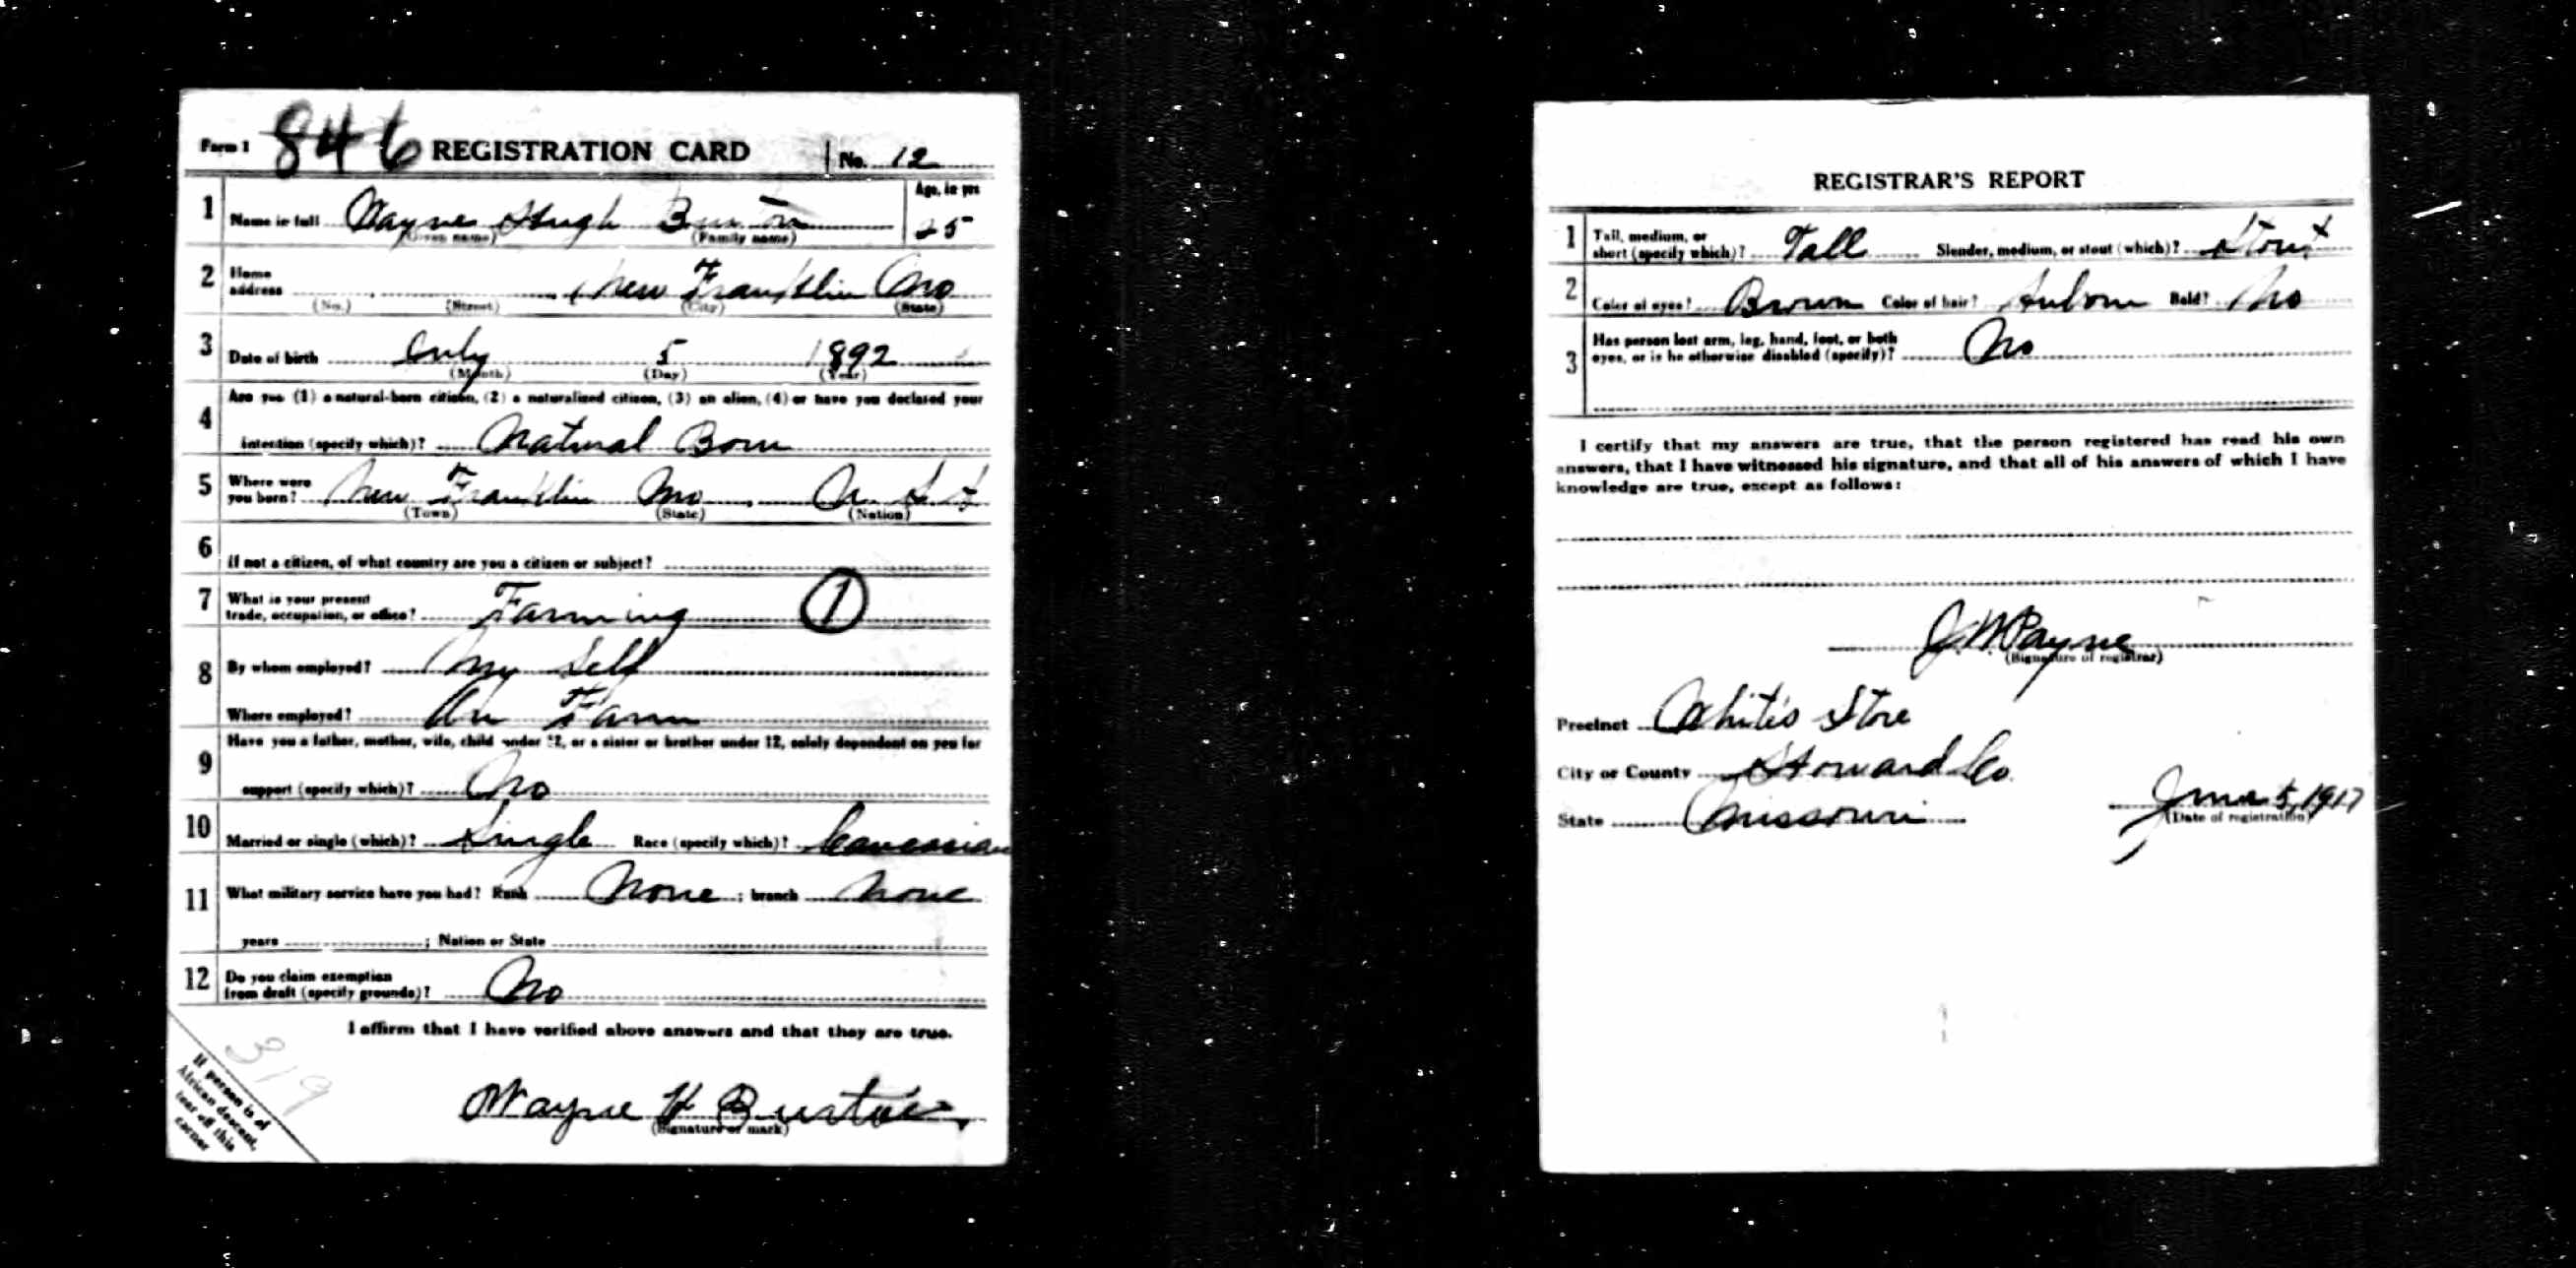 Form 1 846 REGISTRATION CARD No. 12
1 Name in full Wayne Hugh Burton Age, in yrs
(Given name) (Family name) 25
2 Home address New Franklin Mo
(No.) (Street) (City) (State)
3 Date of birth July 5 1892
(Month) (Day) (Year)
4 Are you (1) a natural-born citizen, (2) a naturalized citizen, (3) an alien, (4) or have you declared your
intention (specify which)? Natural Born
5 Where were you born? New Franklin Mo
(Town) (State) (Nation)
6 If not a citizen, of what country are you a citizen or subject?
7 What is your present
trade, occupation, or office? Farming 1
8 By whom employed? My Self
Where employed? Farm
9 Have you a father, mother, wife, child under 12, or a sister or brother under 12, solely dependent on you for
support (specify which)? No
10 Married or single (which)? Single Race (specify which)? Caucasian
11 What military service have you had? Rank None ; branch None
years ; Nation or State
12 Do you claim exemption
from draft (specify grounds)? No
I affirm that I have verified above answers and that they are true.
319
If person is of
African descent,
tear off this
corner
Wayne H Burton
(Signature or mark)
REGISTRAR'S REPORT
1 Tall, medium, or
short (specify which)? Tall Slender, medium, or stout (which)? Stout
2 Color of eyes? Brown Color of hair? Auborn Bald? No
3 Has person lost arm, leg, hand, foot, or both
eyes, or is he otherwise disabled (specify)? No
I certify that my answers are true, that the person registered has read his own
answers, that I have witnessed his signature, and that all of his answers of which I have
knowledge are true, except as follows:
J. W. Payne
(Signature of registrar)
Precinct White's Store
City or County Howard Co.
State Missouri June 5, 1917
(Date of registration)